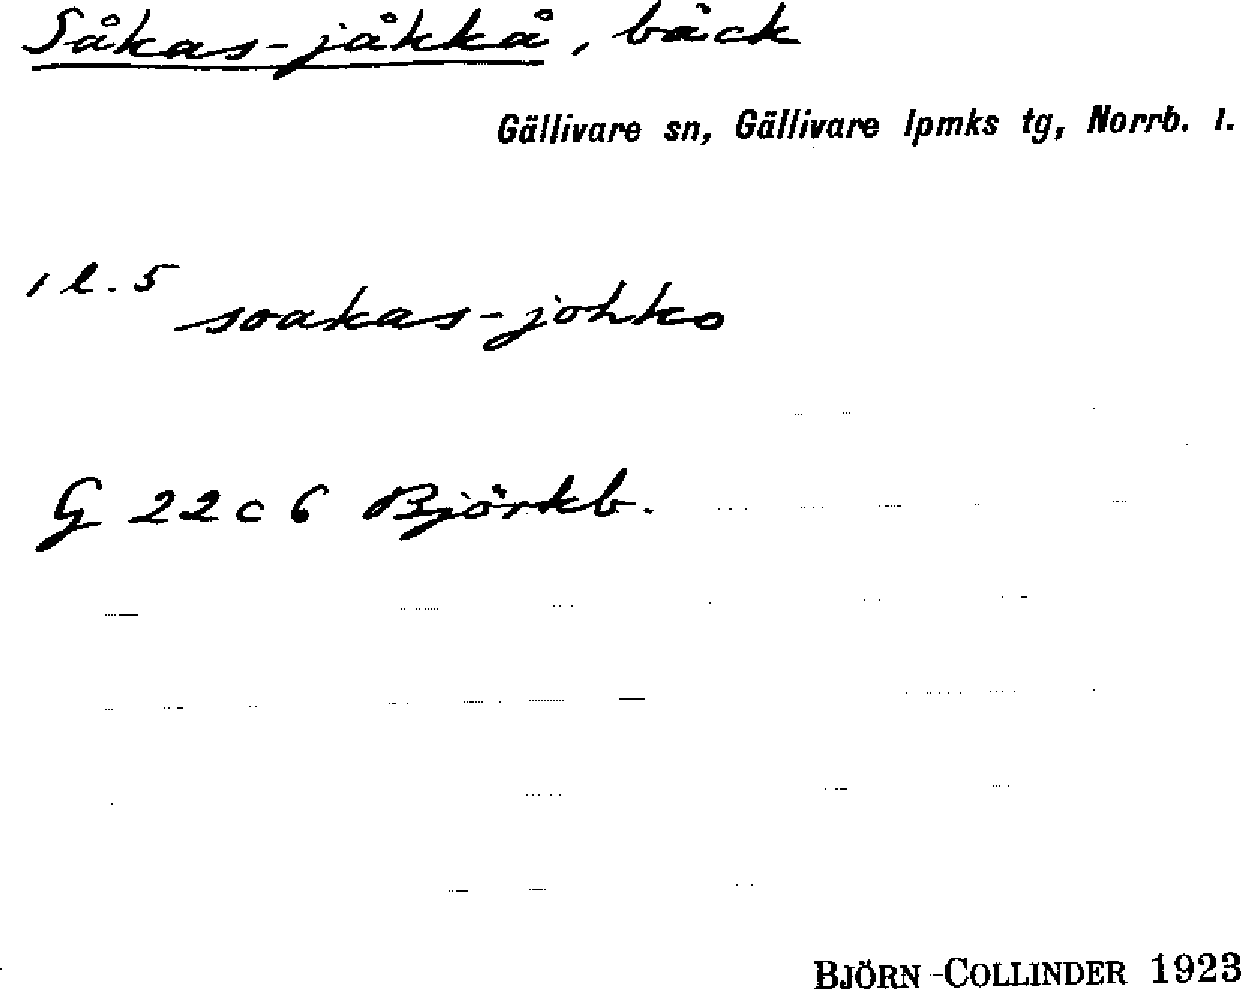 Såkas-jåkkå, bäck
Gällivare sn, Gällivare lpmks tg, Norrb. l.
1 l. 5
soakas-johko
G 22 c 6 Björkb.
BJÖRN-COLLINDER 1923